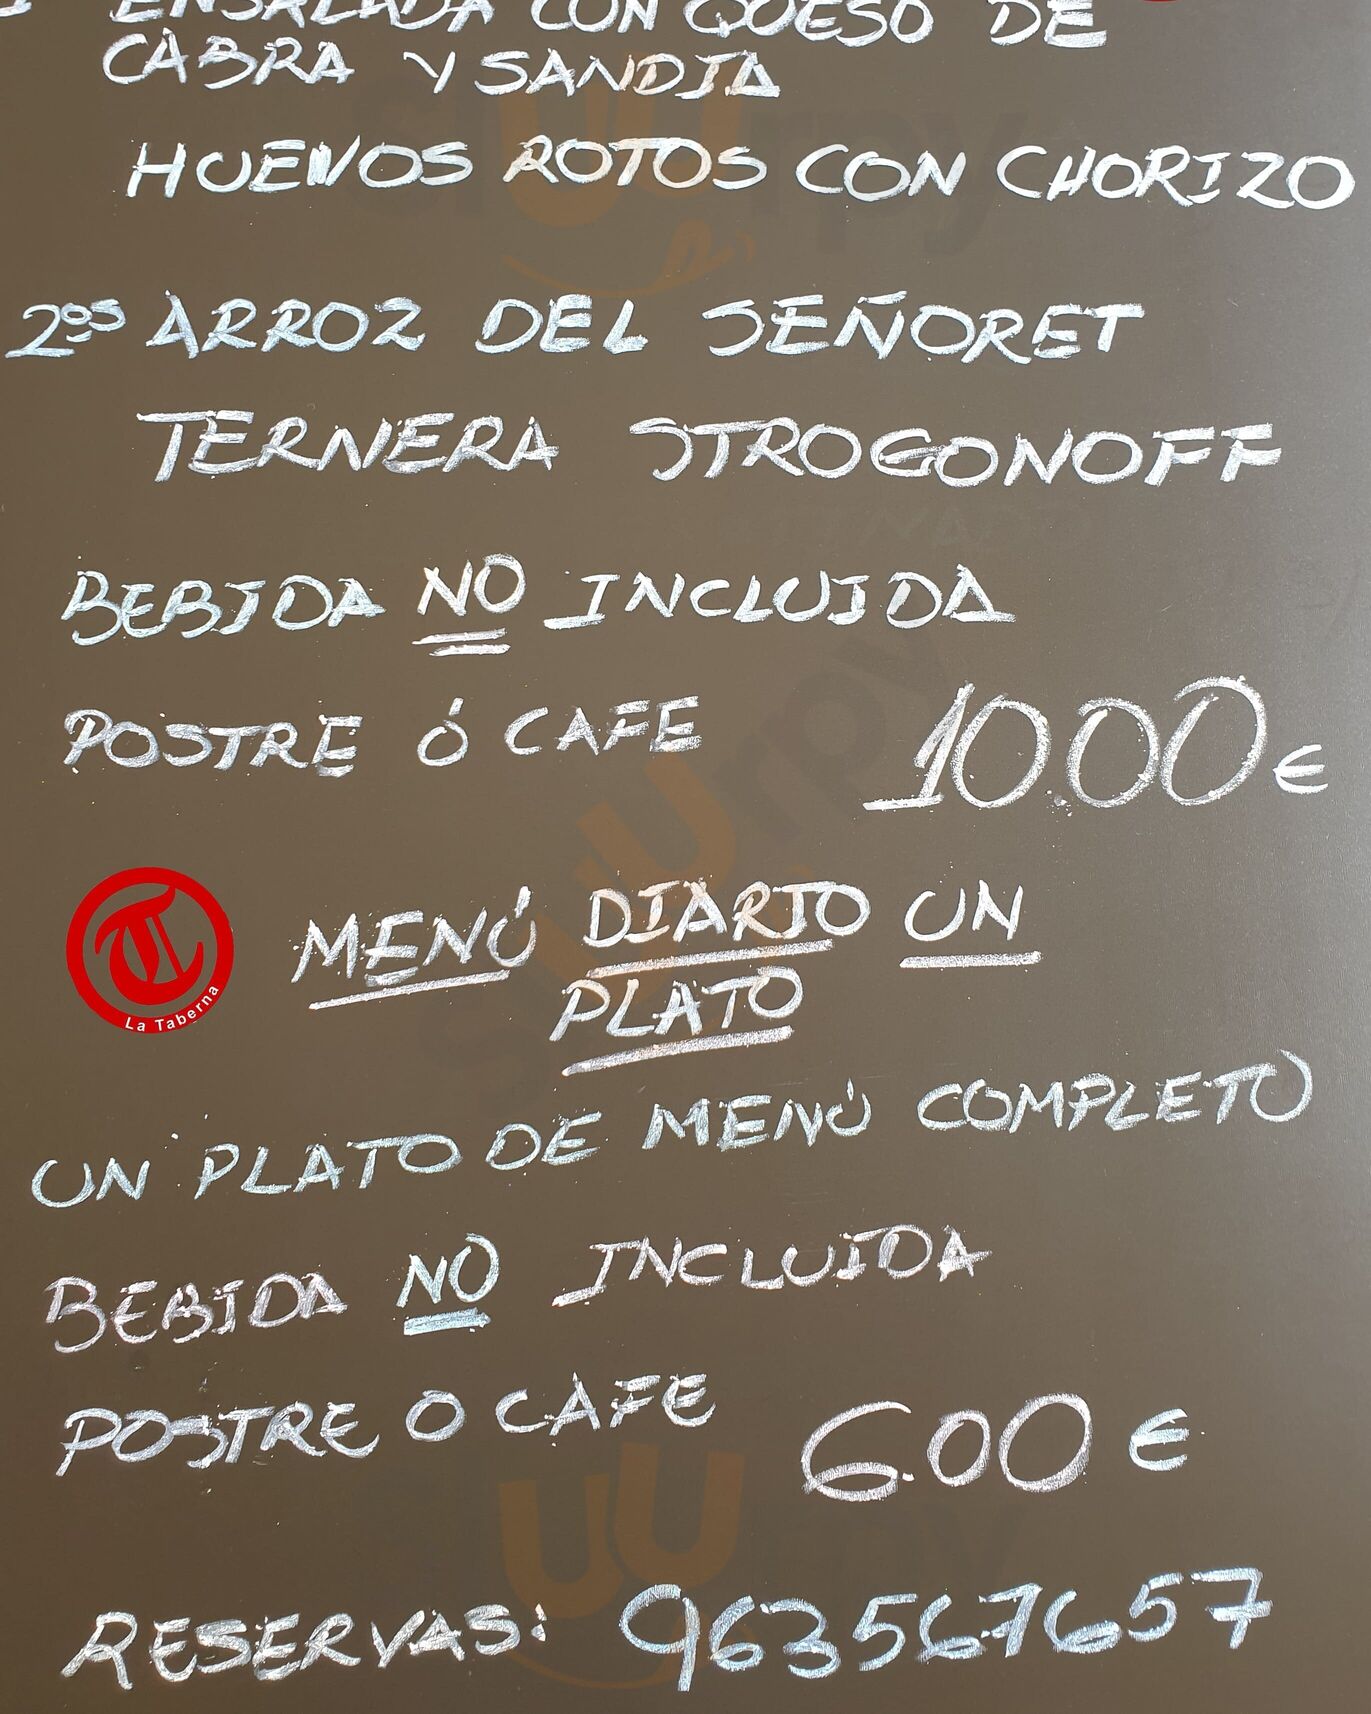 ENSALADA CON QUESO DE
CABRA Y SANDIA
HUEVOS ROTOS CON CHORIZO
2ºs ARROZ DEL SEÑORET
TERNERA STROGONOFF
BEBIDA NO INCLUIDA
POSTRE Ó CAFE 10.00€
La Taberna
MENÚ DIARIO UN
PLATO
UN PLATO DE MENÚ COMPLETO
BEBIDA NO INCLUIDA
POSTRE O CAFE 6.00€
RESERVAS: 963567657